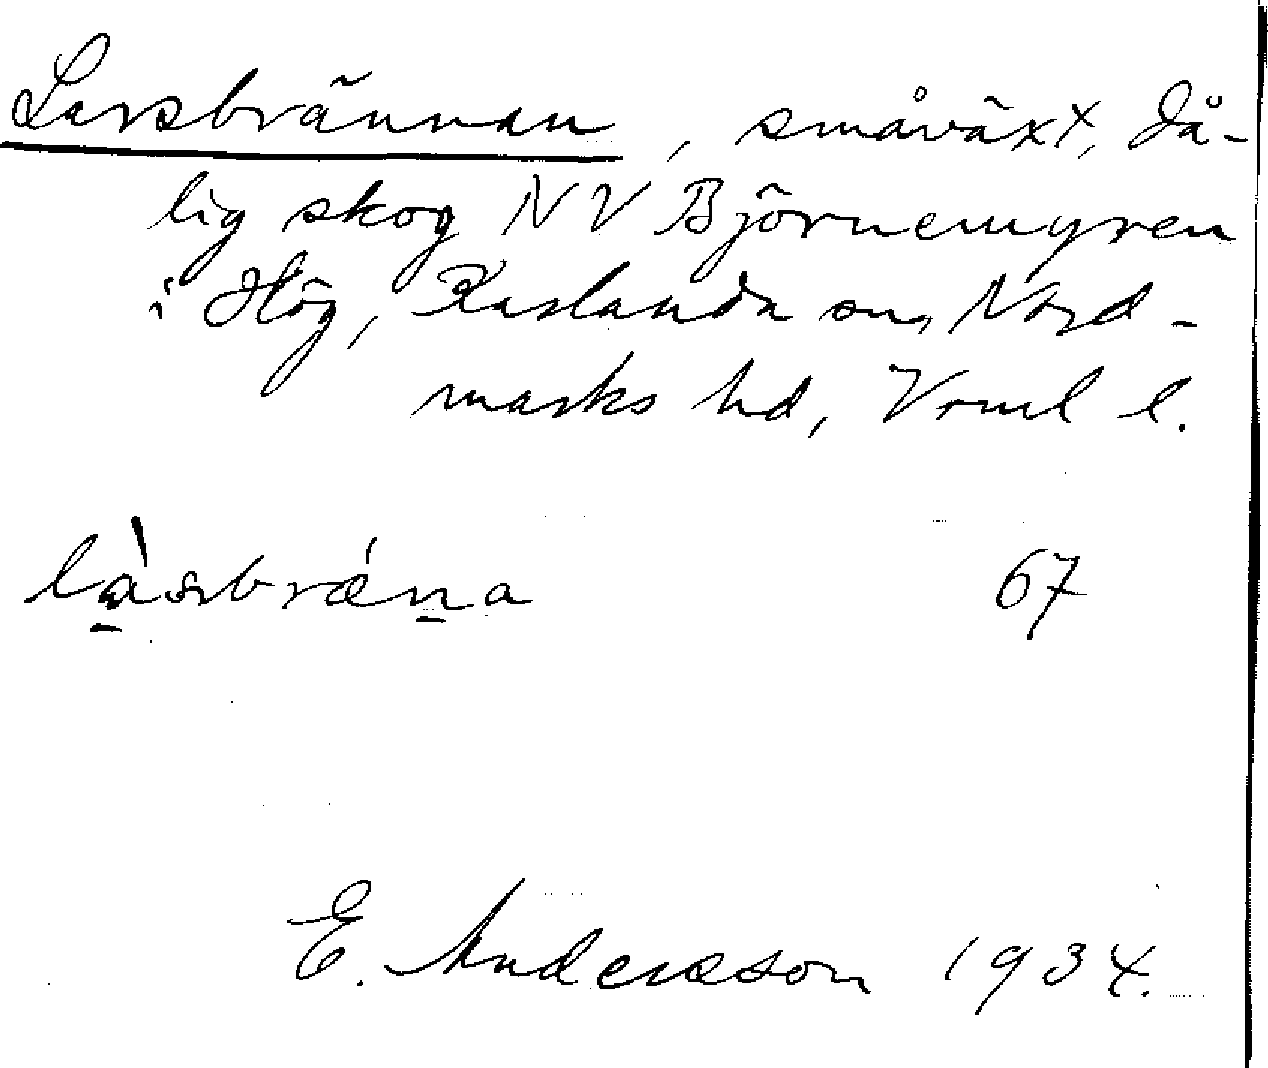 Larsbrännan, småväxt, då-
lig skog NV Björnemyren
i Hög, Karlanda sn, Nord-
marks hd, Vrml l.
67
E. Andersson 1934.